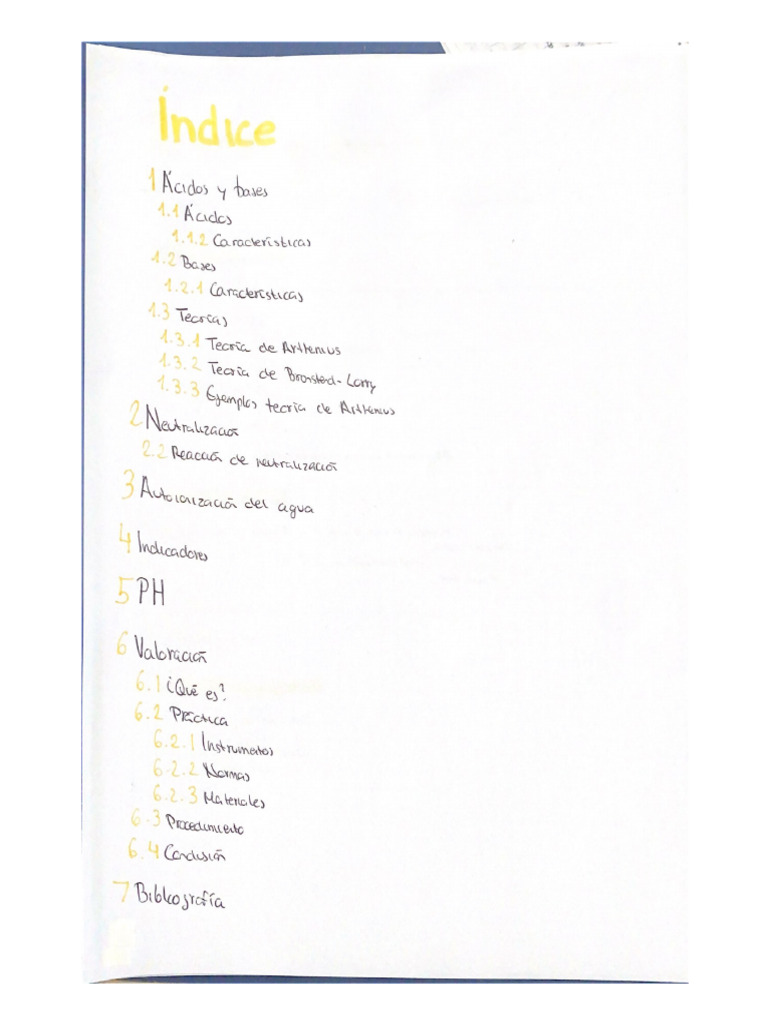 Índice
1 Ácidos y bases
1.1 Ácidos
1.1.2 Características
1.2 Bases
1.2.1 Características
1.3 Teorías
1.3.1 Teoría de Arrhenius
1.3.2 Teoría de Bronsted-Lorry
1.3.3 Ejemplos teoría de Arrhenius
2 Neutralización
2.2 Reacción de neutralización
3 Autoionización del agua
4 Indicadores
5 PH
6 Valoración
6.1 ¿Qué es?
6.2 Práctica
6.2.1 Instrumentos
6.2.2 Normas
6.2.3 Materiales
6.3 Procedimiento
6.4 Conclusión
7 Bibliografía